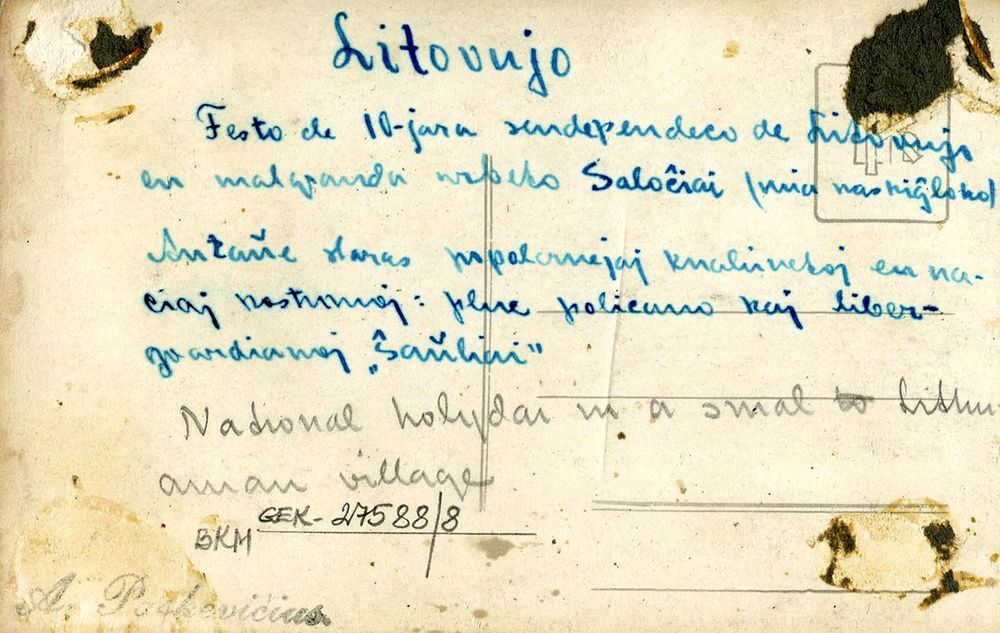 Litovujo
Festo de 10-jara sendependeco de Litovujo
en malgranda urbeto Saločiai (mia naskiĝloko)
Antaŭe staras popolarnejaj knabinetoj en na-
ciaj kostumoj: plue policano kaj liber-
gvardianoj „Ŝaŭliai"
National holydai in a smal to Lithu
anian village
GEK-27588/8
BKM